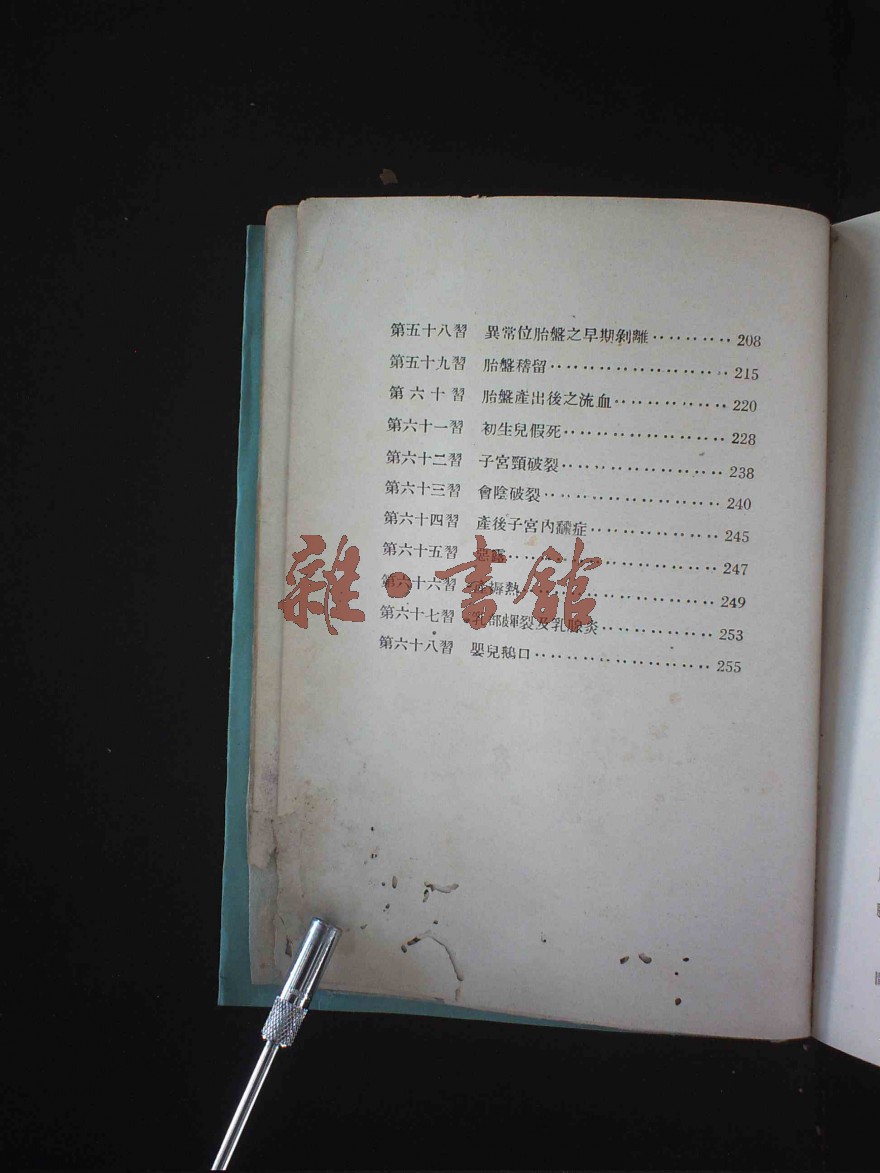 第五十八習　異常位胎盤之早期剝離‥‥‥‥‥208
第五十九習　胎盤稽留‥‥‥‥‥‥‥‥‥‥215
第六十習　胎盤產出後之流血‥‥‥‥‥‥‥220
第六十一習　初生兒假死‥‥‥‥‥‥‥‥‥228
第六十二習　子宮頸破裂‥‥‥‥‥‥‥‥‥238
第六十三習　會陰破裂‥‥‥‥‥‥‥‥‥‥240
第六十四習　產後子宮內膿症‥‥‥‥‥‥‥245
第六十五習　惡露‥‥‥‥‥‥‥‥‥‥‥‥247
第六十六習　產褥熱‥‥‥‥‥‥‥‥‥‥‥249
第六十七習　乳部皹裂及乳腺炎‥‥‥‥‥‥253
第六十八習　嬰兒鵝口‥‥‥‥‥‥‥‥‥‥255
雜·書館